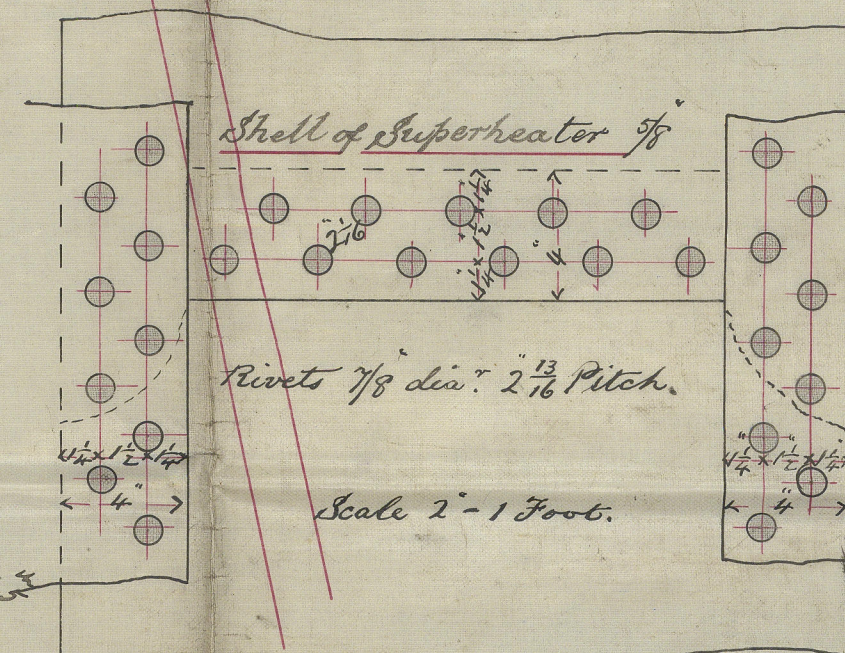 Shell of Superheater 5/8"
1 1/4 x 1 1/2 x 1 1/4
4"
2 1/16"
Rivets 7/8" diar. 2" 13/16 Pitch.
1 1/4 x 1 1/2 x 1 1/4
4"
1 1/4" x 1 1/2" x 1 1/4
4"
Scale 2" - 1 Foot.